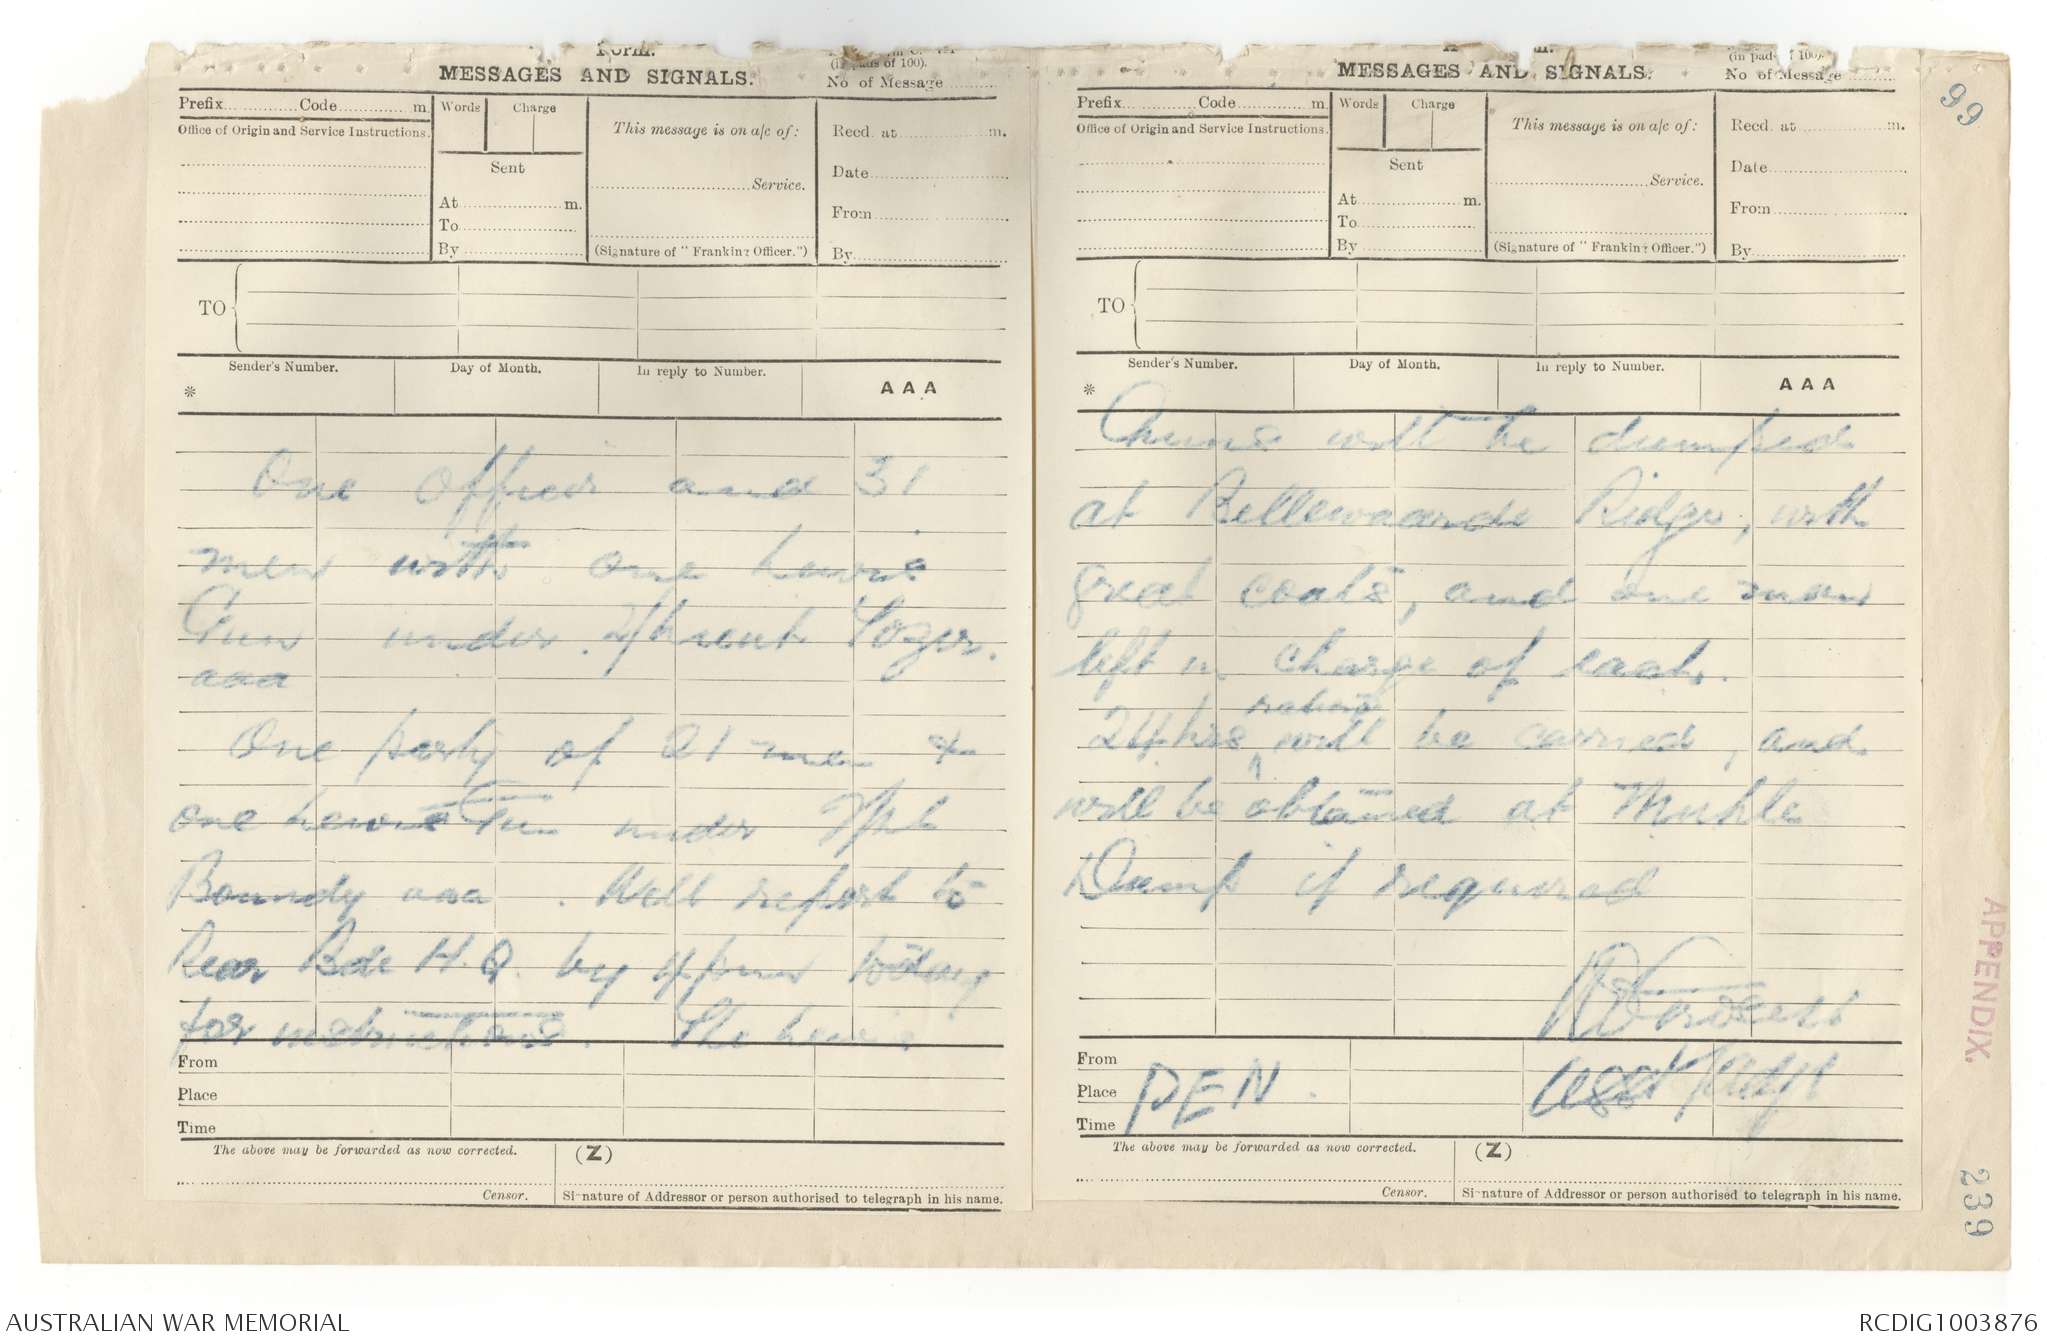 Form.
(in pads of 100).
MESSAGES AND SIGNALS.
No of Message
Prefix Code m.
Words Charge
This message is on a/c of:
Recd. at m.
Office of Origin and Service Instructions.
Sent
Date
Service.
At m.
From
To
By
(Signature of "Franking Officer.")
By
TO
Sender's Number.
Day of Month.
In reply to Number.
AAA
*
One officer and 31
men with one Lewis
Gun under
aaa
One party of 21 men &
one Lewis Gun under
Boundy aaa. Will report to
Rear Bde H.Q. by 4 pm today
for instructions. The Lewis
From
Place
Time
The above may be forwarded as now corrected.
(Z)
Censor.
Signature of Addressor or person authorised to telegraph in his name.
(in pads of 100).
MESSAGES AND SIGNALS.
No of Message
Prefix Code m.
Words Charge
This message is on a/c of:
Recd. at m.
Office of Origin and Service Instructions.
Sent
Date
Service.
At m.
From
To
By
(Signature of "Franking Officer.")
By
TO
Sender's Number.
Day of Month.
In reply to Number.
AAA
*
Guns will be dumped
at Bellewaarde Ridge, with
great coats, and one man
left in charge of each.
rations
24 hrs ^ will be carried, and
will be obtained at Muhle
Dump if required
From
Place
Time
PEN.
Asst Adjt
The above may be forwarded as now corrected.
(Z)
Censor.
Signature of Addressor or person authorised to telegraph in his name.
99
APPENDIX.
239
AUSTRALIAN WAR MEMORIAL
RCDIG1003876